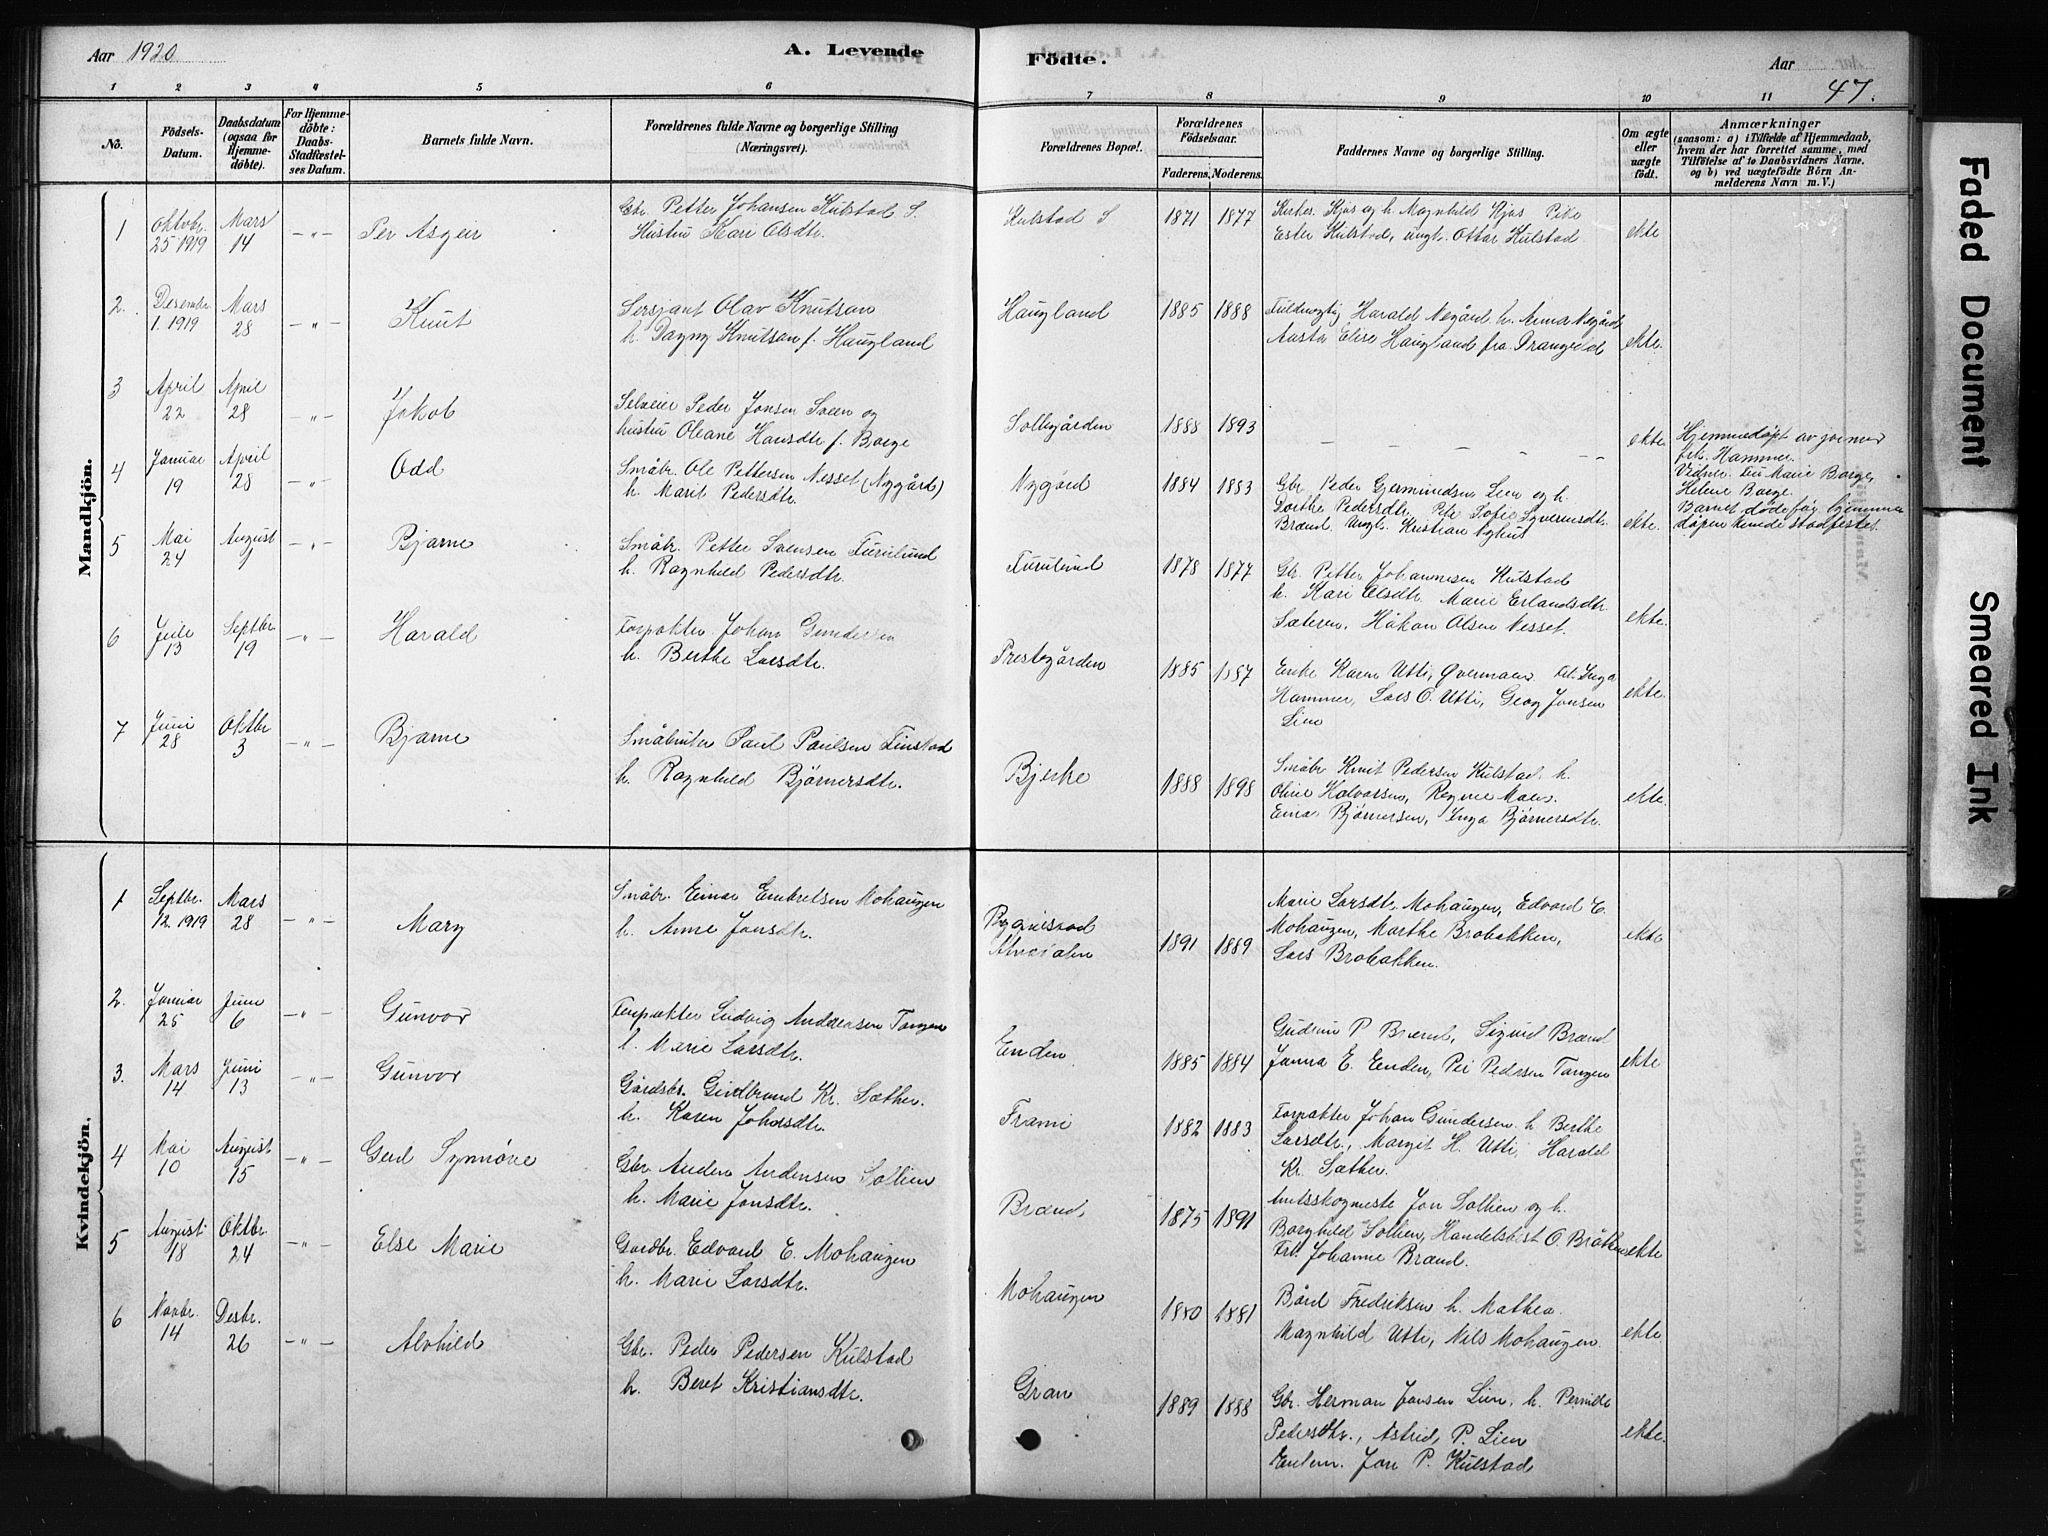 Aar 1920
A. Levende
Födte.
Aar
47.
1 2 3 4 5 6 7 8 9 10 11
No.
Födsels-Datum.
Daabsdatum (ogsaa for Hjemme-döbte).
For Hjemme-döbte: Daabs-Stadfæstel-ses Datum.
Barnets fulde Navn.
Forældrenes fulde Navne og borgerlige Stilling (Næringsvei).
Forældrenes Bopæl.
Forældrenes Födselsaar.
Faderens. Moderens.
Faddernes Navne og borgerlige Stilling.
Om ægte eller uægte födt.
Anmærkninger
(saasom: a) i Tilfælde af Hjemmedaab,
hvem der har forrettet samme, med
Tilföielse af to Daabsvidners Navne.
og b) ved uægtefödte Börn An-
melderens Navn m. V.)
Mandkjön.
1 Oktobr. 25 1919 Mars 14 Per Asgeir
Gbr. Petter Johansen Kulstad S.
Hustru Kari Olsdtr.
Kulstad S 1871 1877
Kirkes. Kjøs og h. Magnhild Kjøs Pike
Ester Kulstad, ungk. Ottar Kulstad.
ekte
2. Desember 1. 1919 Mars 28 Knut
Sersjant Olav Knutsen
h. Dagny Knutsen f. Haugland
Haugland 1885 1888
Fuldmegtig Harald Negård h. Anna Negård
Aasta Elise Haugland fra
ekte.
3 April 22 April 28 Jakob
Selveier Peder Jonsen Sveen og
hustru Oleane Hansdtr f. Barge
Sollegården 1888 1893
ekte
Hjemmedøpt av jormor
frk. Hammer.
Vidner. Fru Marie Barge,
Helene Barge.
Barnet døde før hjemme
døpen kunde stadfestet.
4 Januar 19 April 28 Odd
Småbr. Ole Pettersen Nesset (Nygård)
h. Marit Pedersdtr.
Nygård 1884 1883
Gbr. Peder Gjermundsen Lien og h.
Dorthe Pedersdtr. Pike Sofie Syverinsdtr.
Brænd. Ungk. Kristian Nyhus
ekte.
5 Mai 24 August 1 Bjarne
Småbr. Petter Svensen Furulund
h. Ragnhild Pedersdtr.
Furulund 1878 1877
Gbr. Petter Johannesen Kulstad
h. Kari Olsdtr. Marie Erlandsdtr.
Sæteren. Håkon Olsen Nesset.
ekte.
6 Juli 13 Septbr. 19 Harald
Forpakter. Johan Gundersen
h. Berthe Larsdtr.
Prestegården 1885 1887
Enke Karen Utti, Øvermoen Frk. Inga
Hammer, Lars O. Utti, Georg Jonsen
Lien
ekte.
7 Juni 28 Oktbr 3 Bjarne
Småbruker Paul Paulsen Finstad
h. Ragnhild Bjørnersdtr.
Bjerke 1888 1898
Småbr Knut Pedersen Kulstad h.
Oline Halvorsen, Ragne Moen.
Einar Bjørnersen, Inga Bjørnersdtr.
ekte.
Kvindekjön.
1 Septbr. 12. 1919 Mars 28 Mary
Småbr. Einar Embretsen Mohaugen
h. Anne Jonsdtr.
Atnedalen 1891 1889
Marie Larsdtr. Mohaugen, Edvard E.
Mohaugen, Marthe Brobakken,
Lars Brobakken.
ekte
2. Januar 25 Juni 6 Gunvor
Forpakter Ludvig Andreasen Tangen
h. Marie Larsdtr.
Enden 1885 1884
Gudrun P Brænd, Sigurd Brænd
Janna E. Enden, Per Pedersen Tangen
ekte
3. Mars 14 Juni 13 Gunvor
Gårdsbr. Gudbrand Kr. Sæther.
h. Karen Johansdtr.
Frami 1882 1883
Forpakter Johan Gundersen h Berthe
Larsdtr., Margit H. Utti, Harald
Kr. Sæther.
4 Mai 10 August 15 Gerd Synnøve
Gbr. Anders Andersen Sollien
h. Marie Jonsdtr.
Brænd 1875 1891
Amtsskogmester Jon Sollien og h.
Borghild Sollien, Handelsbest. O. Bråthen
Frk. Johanne Brænd.
ekte
5 August 18 Oktbr. 24 Else Marie
Gardbr. Edvard E. Mohaugen
h. Marie Larsdtr.
Mohaugen 1880 1881
Bård Fredriksen h. Mathea
Magnhild Utti, Nils Mohaugen.
ekte.
6 Novbr. 14 Desbr. 26 Alvhild
Gbr. Peder Pedersen Kulstad
h. Beret Kristiansdtr.
Gran 1889 1888
Gbr. Herman Jonsen Lien, h. Pernille
Pedersdtr., Astrid, P. Lien
Jon P. Kulstad
ekte.
Faded Document
Smeared Ink